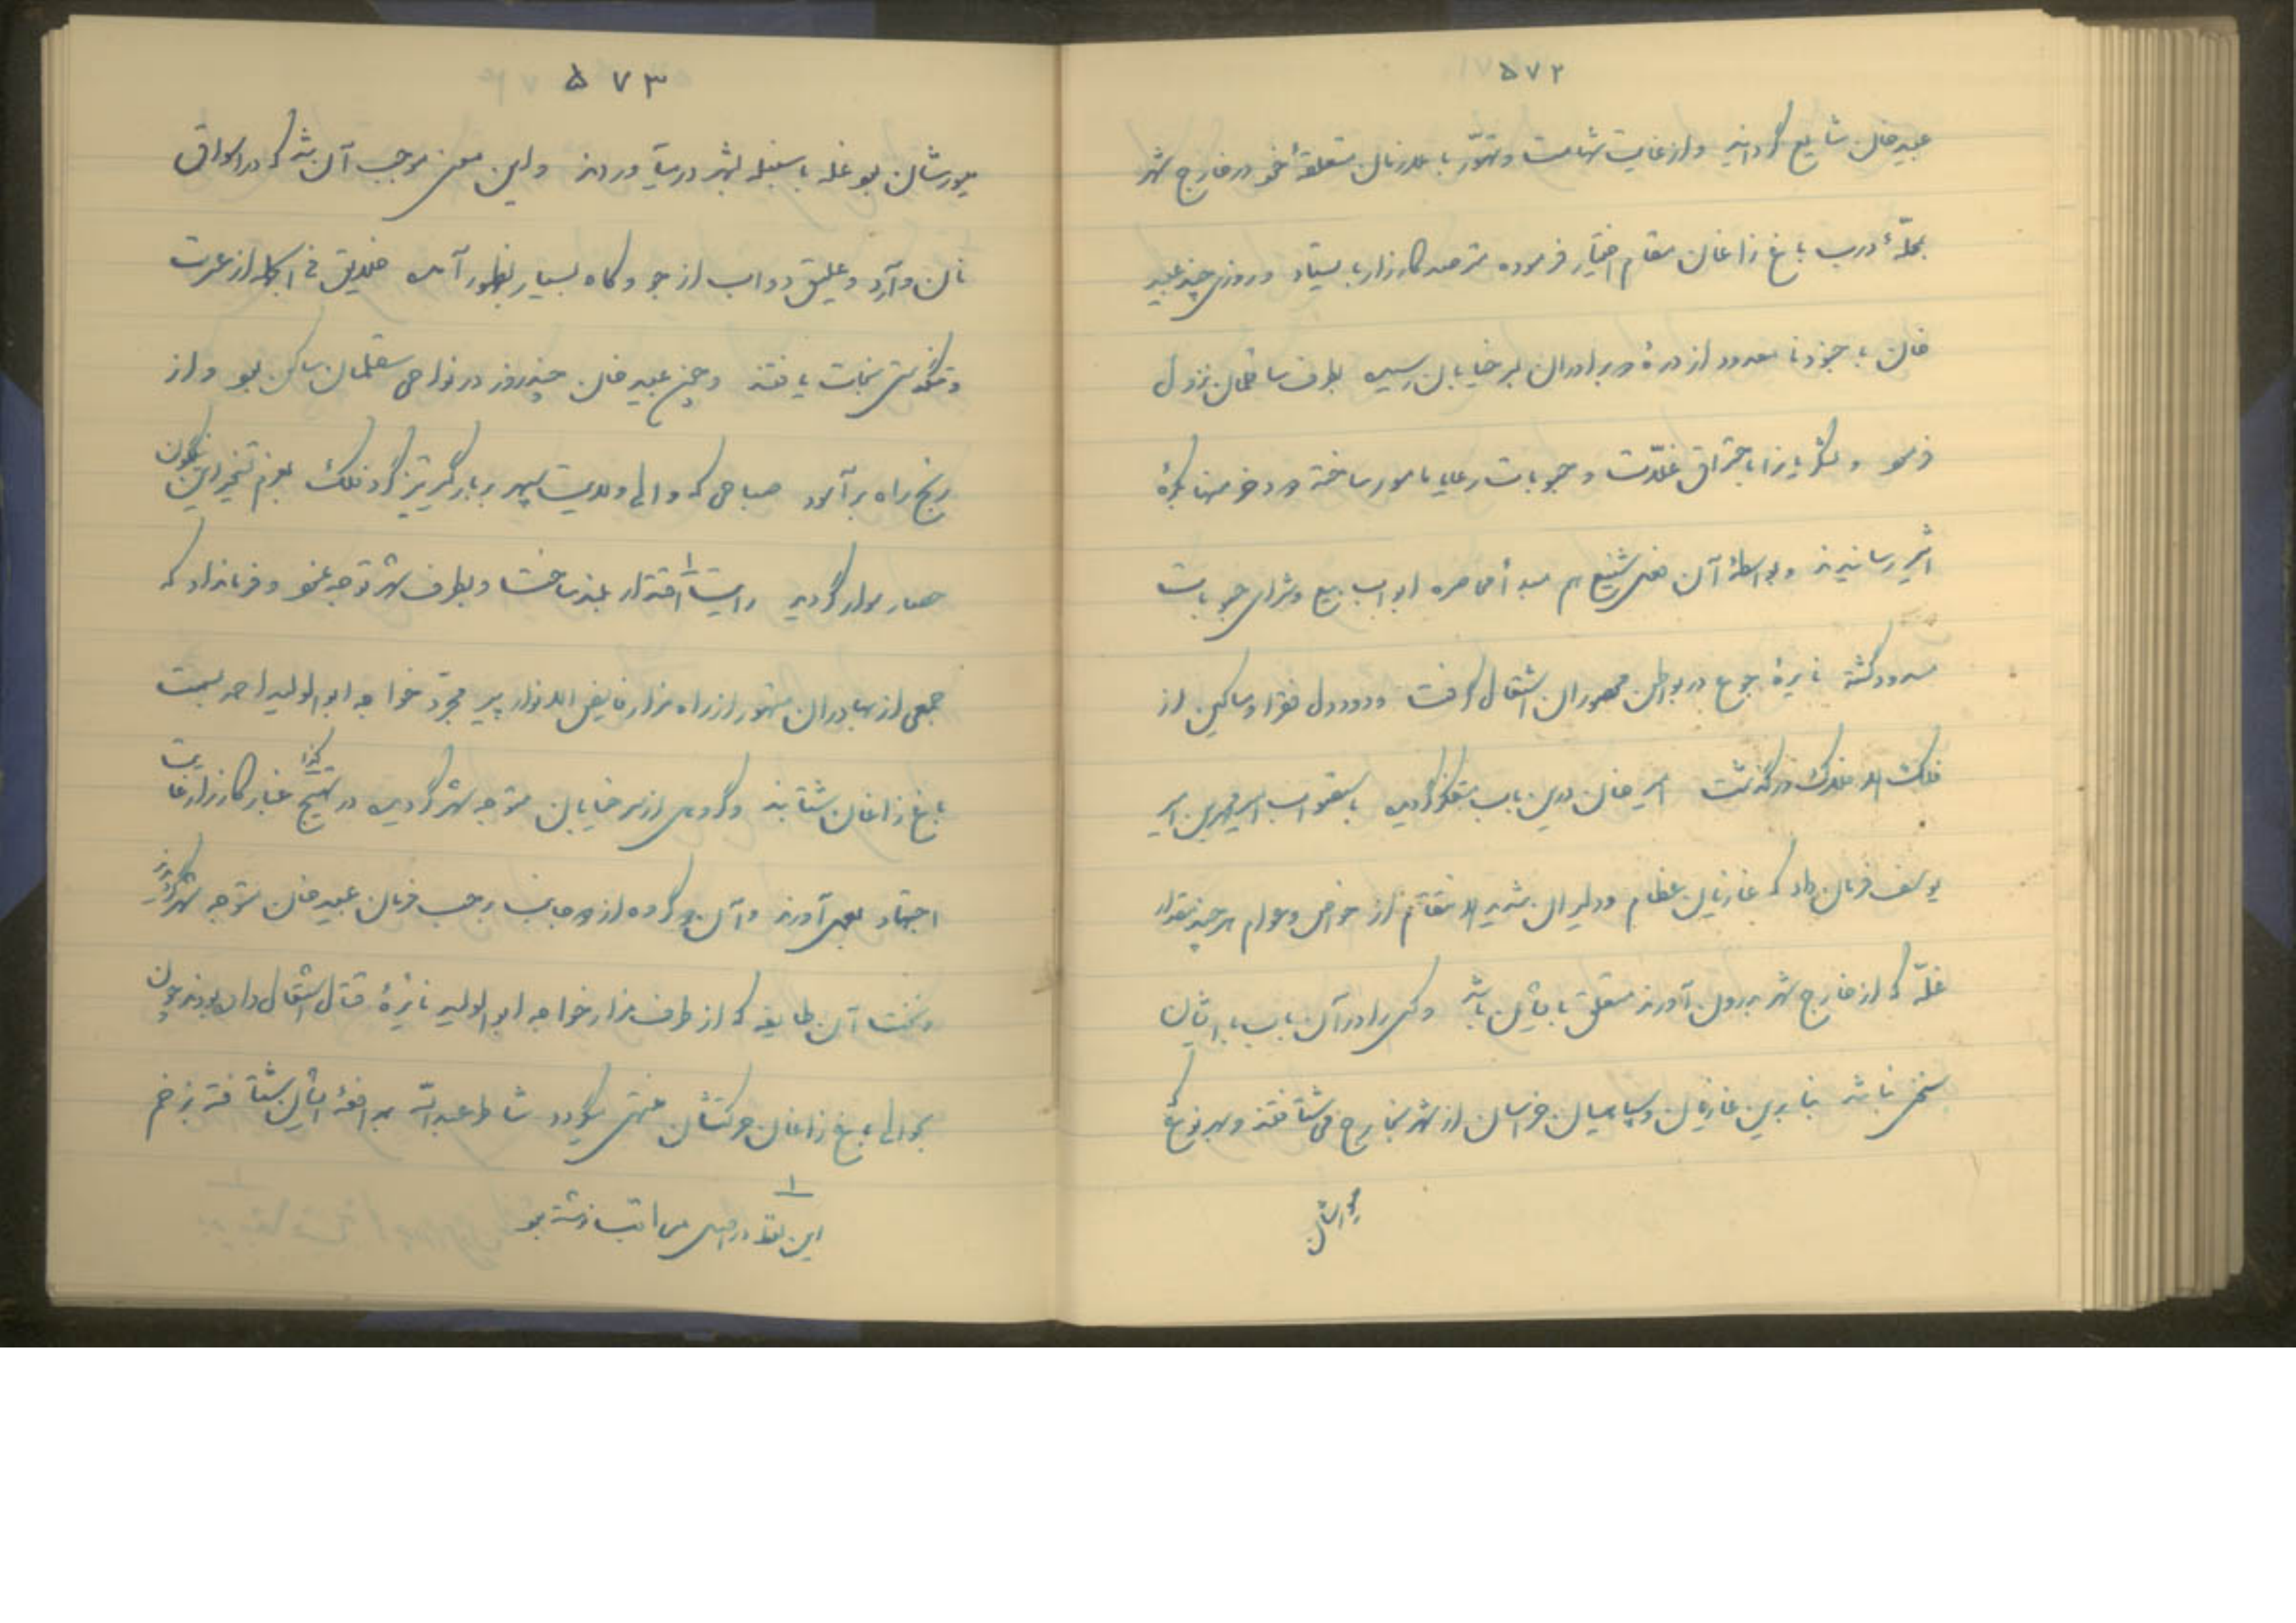 ۵۷۲
عبید خان شایع گردانید و از غایت شهامت و تهوّر با ملازمان متعلقهٔ خود در خارج شهر
بمحلّهٔ درب باغ زاغان مقام اختیار فرموده مترصد کارزار بایستاد و روزی چند عبید
خان با جنود نا معدود از درهٔ دو برادران بسر خیابان رسیده بطرف ساقسلمان نزول
فرمود و لشکریانرا باحتراق غلّات و حبوبات رعایا مامور ساخته دود خرمنها بکرهٔ
اثیر رسانیدند و بواسطهٔ آن فعل شنیع هم مبدأ محاصره ابواب بیع و شرای حبوبات
مسدود گشته نایرهٔ جوع در بواطن محصوران اشتعال گرفت و دود دل فقرا و مساکین از
فلک الافلاک درگذشت امیر خان درین باب متفکر گردیده باستصواب امیر محمد بن امیر
یوسف فرمان داد که غازیان عظام و دلیران شدید الانتقام از خواص و عوام هر چند مقدار
غلّه که از خارج شهر بدرون آورند متعلق بایشان باشد و کسی را در آن باب با ایشان
سخنی نباشد بنابرین غازیان و سپاهیان خراسان از شهر بخارج می شتافتند و بهر نوع که
میورشان بود غله با سنبله بشهر در میآوردند و این معنی موجب آن شد که در اسواق
۵۷۳
نان و آرد و علیق دواب از جو و کاه بسیار بظهور آمده خلایق فی الجمله از عسرت
و تنگدستی نجات یافتند و چون عبید خان چند روز در نواحی سقلمان ساکن بود و از
رنج راه برآسود صباحی که والی ولایت سپهر بر بارگیر تیزگرد فلک بعزم تسخیر این نیلگون
حصار سوار گردید رایت ۱ اقتدار بلند ساخت و بطرف شهر توجه نمود و فرمانداد که
جمعی از بهادران متهور از راه مزار فایض الانوار پیر مجرّد خواجه ابوالولید احمد بسمت
باغ زاغان شتابند و گروهی از سر خیابان متوجه شهر گردیده در تهییج کذا غبار کارزار غایت
اجتهاد بجای آورند و آن دو گروه از دو جانب برحسب فرمان عبید خان متوجه شهر گردیدند
و نخست آن طایفه که از طرف مزار خواجه ابوالولید نایرهٔ قتال اشتعال داده بودند چون
بحوالی باغ زاغان حرکتشان منتهی میگردد شاطر عبدالله بمدافعهٔ ایشان شتافته بزخم
۱
این لفظ در اصل مراتب نوشته بود